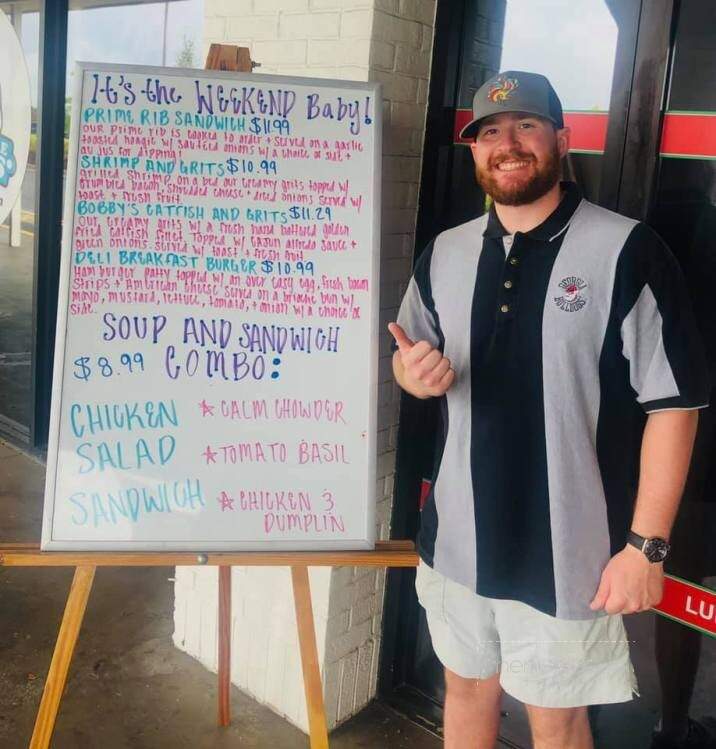 It's the WEEKEND Baby!
PRIME RIB SANDWICH $11.99
our prime rib is cooked to order + served on a garlic
toasted hoagie w/ sautéed onions w/ a choice of side +
au jus for dipping!
SHRIMP AND GRITS $10.99
grilled shrimp on a bed our creamy grits topped w/
crumbled bacon, shredded cheese + diced onions served w/
toast + fresh fruit
BOBBY'S CATFISH AND GRITS $11.29
our creamy grits w/ a fresh hand battered golden
fried catfish fillet topped w/ cajun alfredo sauce +
green onions. served w/ toast + fresh fruit
DELI BREAKFAST BURGER $10.99
Hamburger patty topped w/ an over easy egg, fresh bacon
strips + American cheese served on a brioche bun w/
mayo, mustard, lettuce, tomato, + onion w/ a choice of
side.
SOUP AND SANDWICH
$8.99 COMBO:
CHICKEN
SALAD
SANDWICH
☆ CALM CHOWDER
☆ TOMATO BASIL
☆ CHICKEN &
DUMPLIN
GEORGIA
BULLDOGS
LU